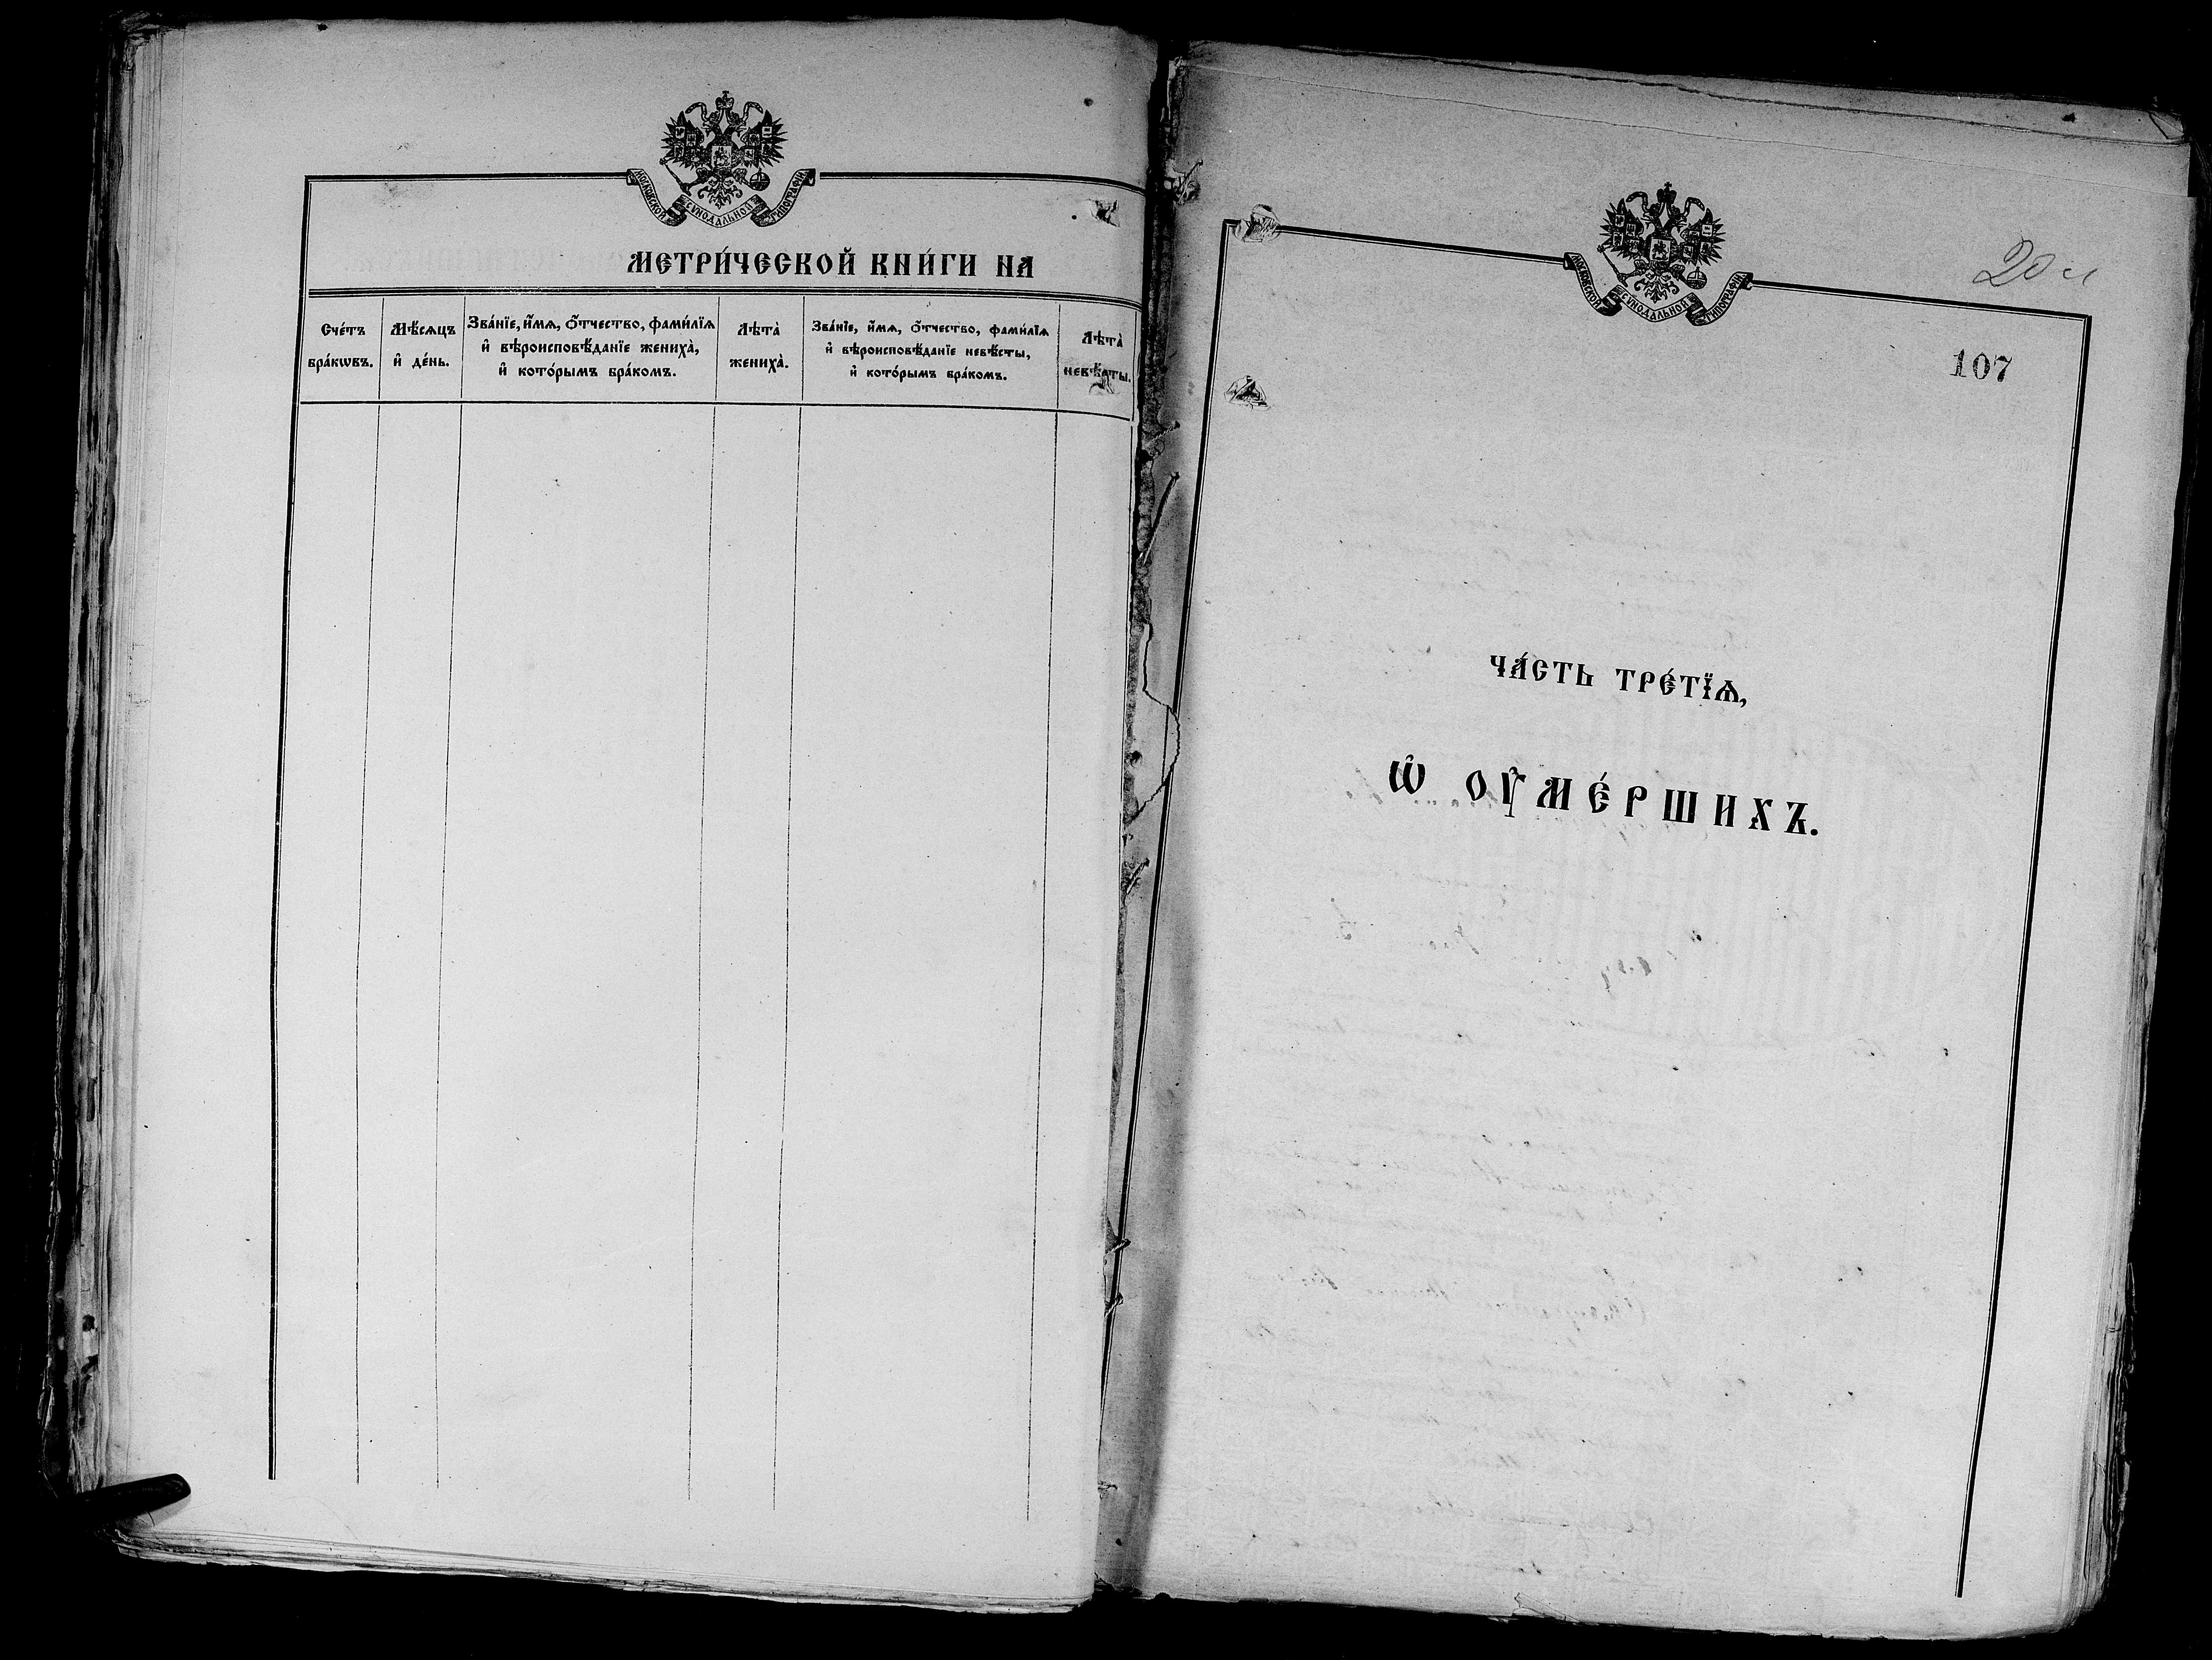 МОСКОВСКОЙ СѴНОДАЛЬНОЙ ТИПОГРАФІИ
МЕТРИ́ЧЕСКОЙ КНИ́ГИ НА
Сче́тъ бра́кѡвъ.
Мѣ́сяцъ и҆ де́нь.
Зва́нїе, и҆́мѧ, ѻ҆́тчество, фами́лїѧ
и҆ вѣроисповѣ́данїе жениха̀,
и҆ кото́рымъ бра́комъ.
Лѣта̀ жениха̀.
Зва́нїе, и҆́мѧ, ѻ҆́тчество, фами́лїѧ
и҆ вѣроисповѣ́данїе невѣ́сты,
и҆ кото́рымъ бра́комъ.
Лѣта̀ невѣ́сты.
МОСКОВСКОЙ СѴНОДАЛЬНОЙ ТИПОГРАФІИ
107
ЧА́СТЬ ТРЕ́ТЇѦ,
Ѡ҆ ОУ҆МЕ́РШИХЪ.